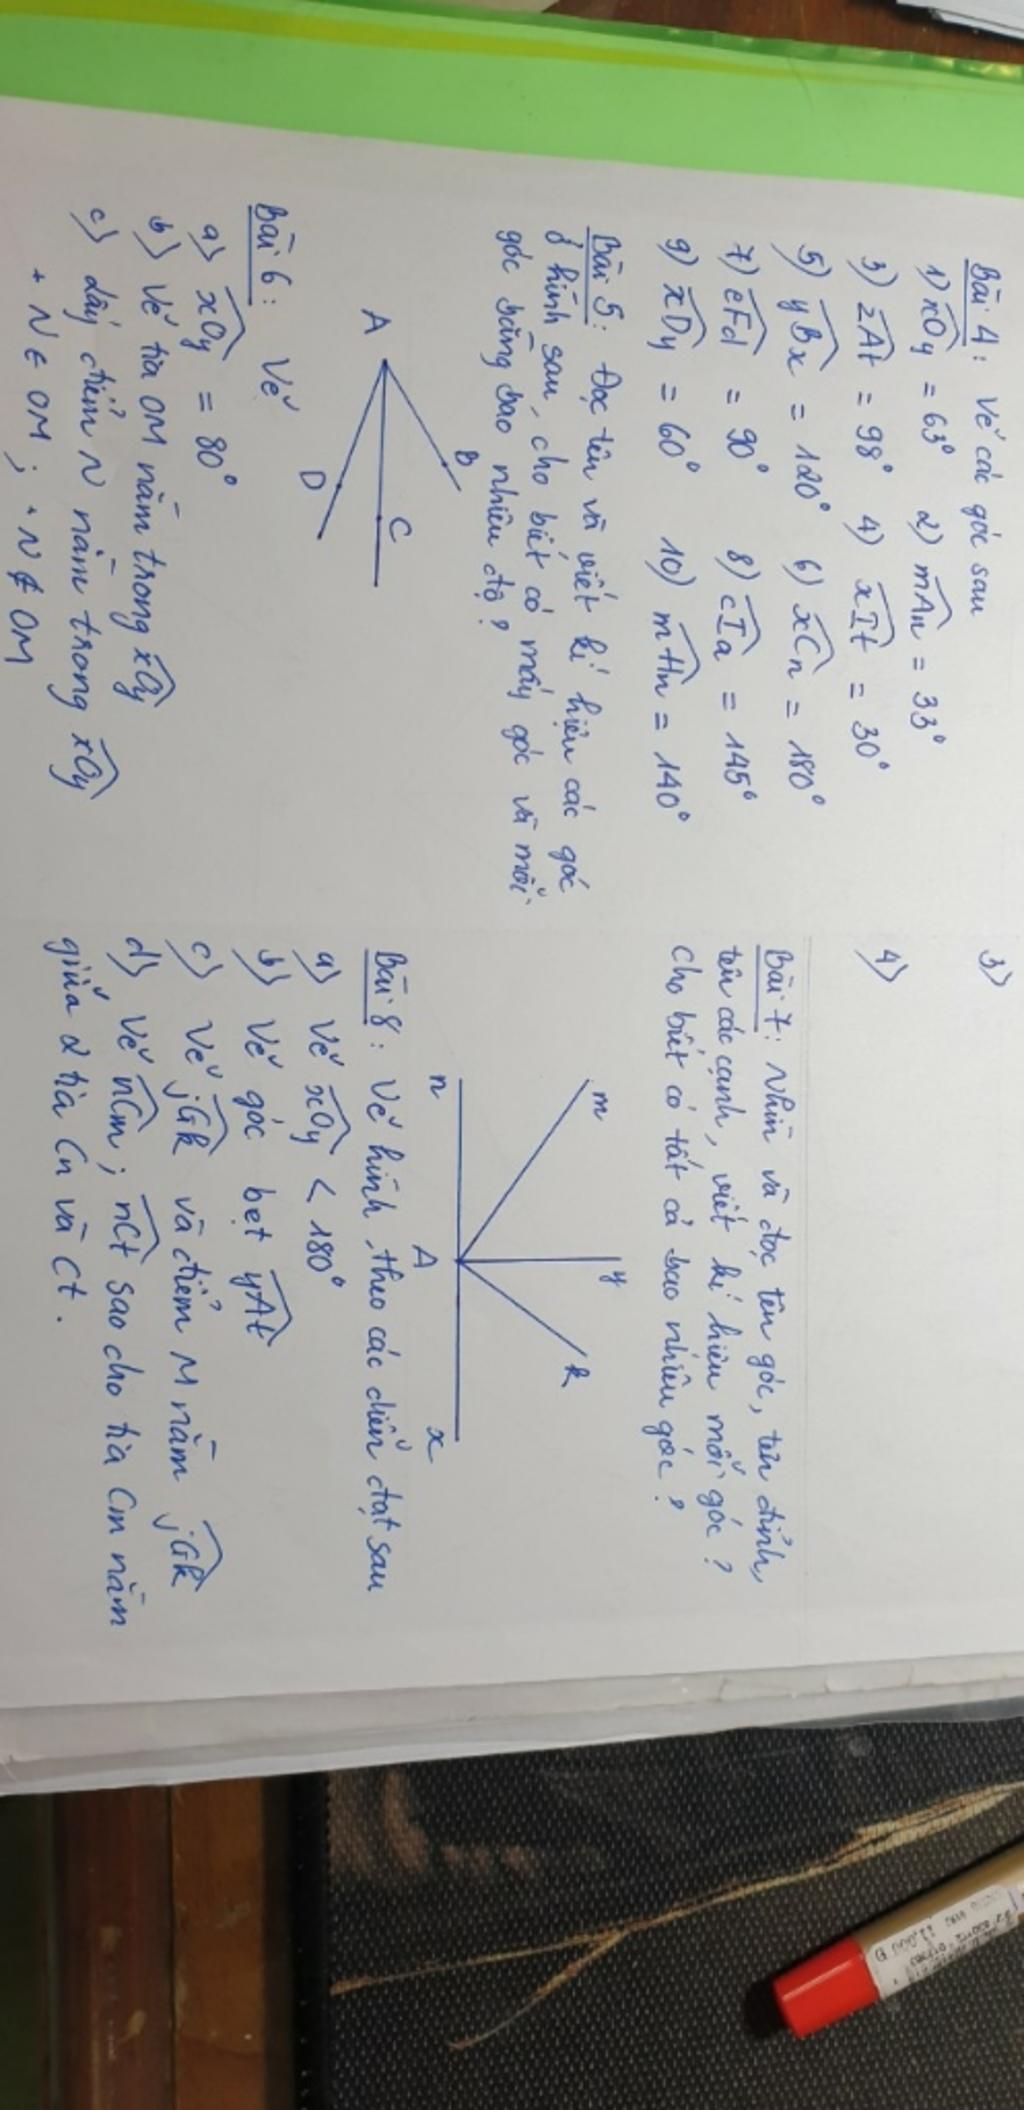 Bài 4: Vẽ các góc sau
1) xOy = 63° 2) mAn = 33°
3) zAt = 98° 4) xIt = 30°
5) yBx = 120° 6) xCn = 180°
7) eFd = 90° 8) cIa = 145°
9) xDy = 60° 10) mHn = 140°
Bài 5: Đọc tên và viết kí hiệu các góc
ở hình sau, cho biết có mấy góc và mỗi
góc bằng bao nhiêu độ?
B
A
C
D
Bài 6: Vẽ
a) xOy = 80°
b) Vẽ tia OM nằm trong xOy
c) Lấy điểm N nằm trong xOy
+ N ∈ OM ; + N ∉ OM
3)
4)
Bài 7: Nhìn và đọc tên góc, tên đỉnh,
tên các cạnh, viết kí hiệu mỗi góc?
Cho biết có tất cả bao nhiêu góc?
m
y
k
n
A
x
Bài 8: Vẽ hình theo các diễn đạt sau
a) Vẽ xOy < 180°
b) Vẽ góc bẹt yAt
c) Vẽ jGk và điểm M nằm jGk
d) Vẽ nCm; nCt sao cho tia Cm nằm
giữa 2 tia Cn và Ct.